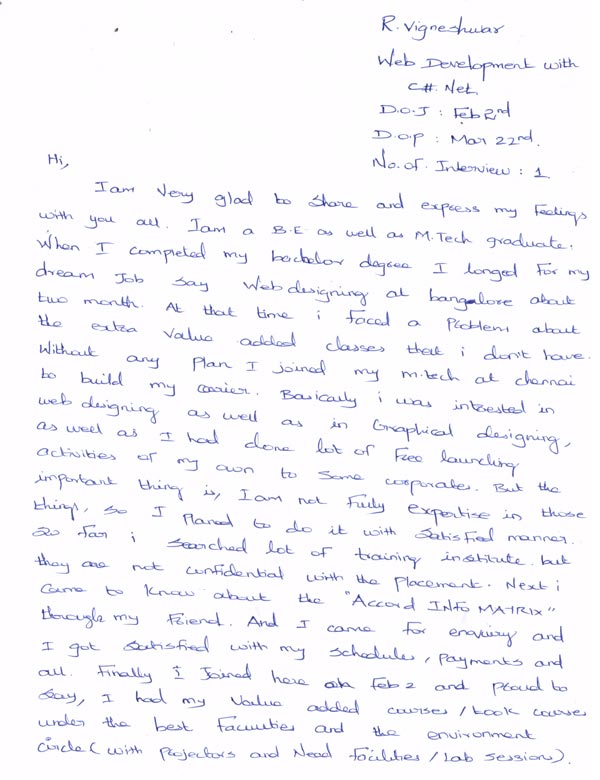 R. Vigneshwar
Web Development with
C#. Net.
D.O.J : Feb 2nd
D.O.P : Mar 22nd.
No. of. Interview : 1
Hi,
I am very glad to share and express my Feelings
with you all. I am a B.E as well as M.Tech graduate.
When I completed my bachelor degree I longed for my
dream Job say Web designing at bangalore about
two month. At that time i faced a Problem about
the extra value added classes that i don't have.
Without any plan I joined my m.tech at chennai
to build my carrier. Basically i was intrested in
web designing as well as in Graphical designing,
as well as I had done lot of Free launcing
activities of my own to some corporates. But the
important thing is, I am not Fully expertise in those
things, so I Planed to do it with satisfied manner.
so far i searched lot of training institute. but
they are not confidential with the placement. Next i
came to know about the "Accord INFO MATRIX"
through my Friend. And I came for enquiry and
I got satisfied with my schedules, payments and
all. Finally i Joined here Feb 2 and proud to
say, I had my value added courses / book courses
under the best Faculties and the environment
circle ( with projectors and Need Facilities / Lab session).